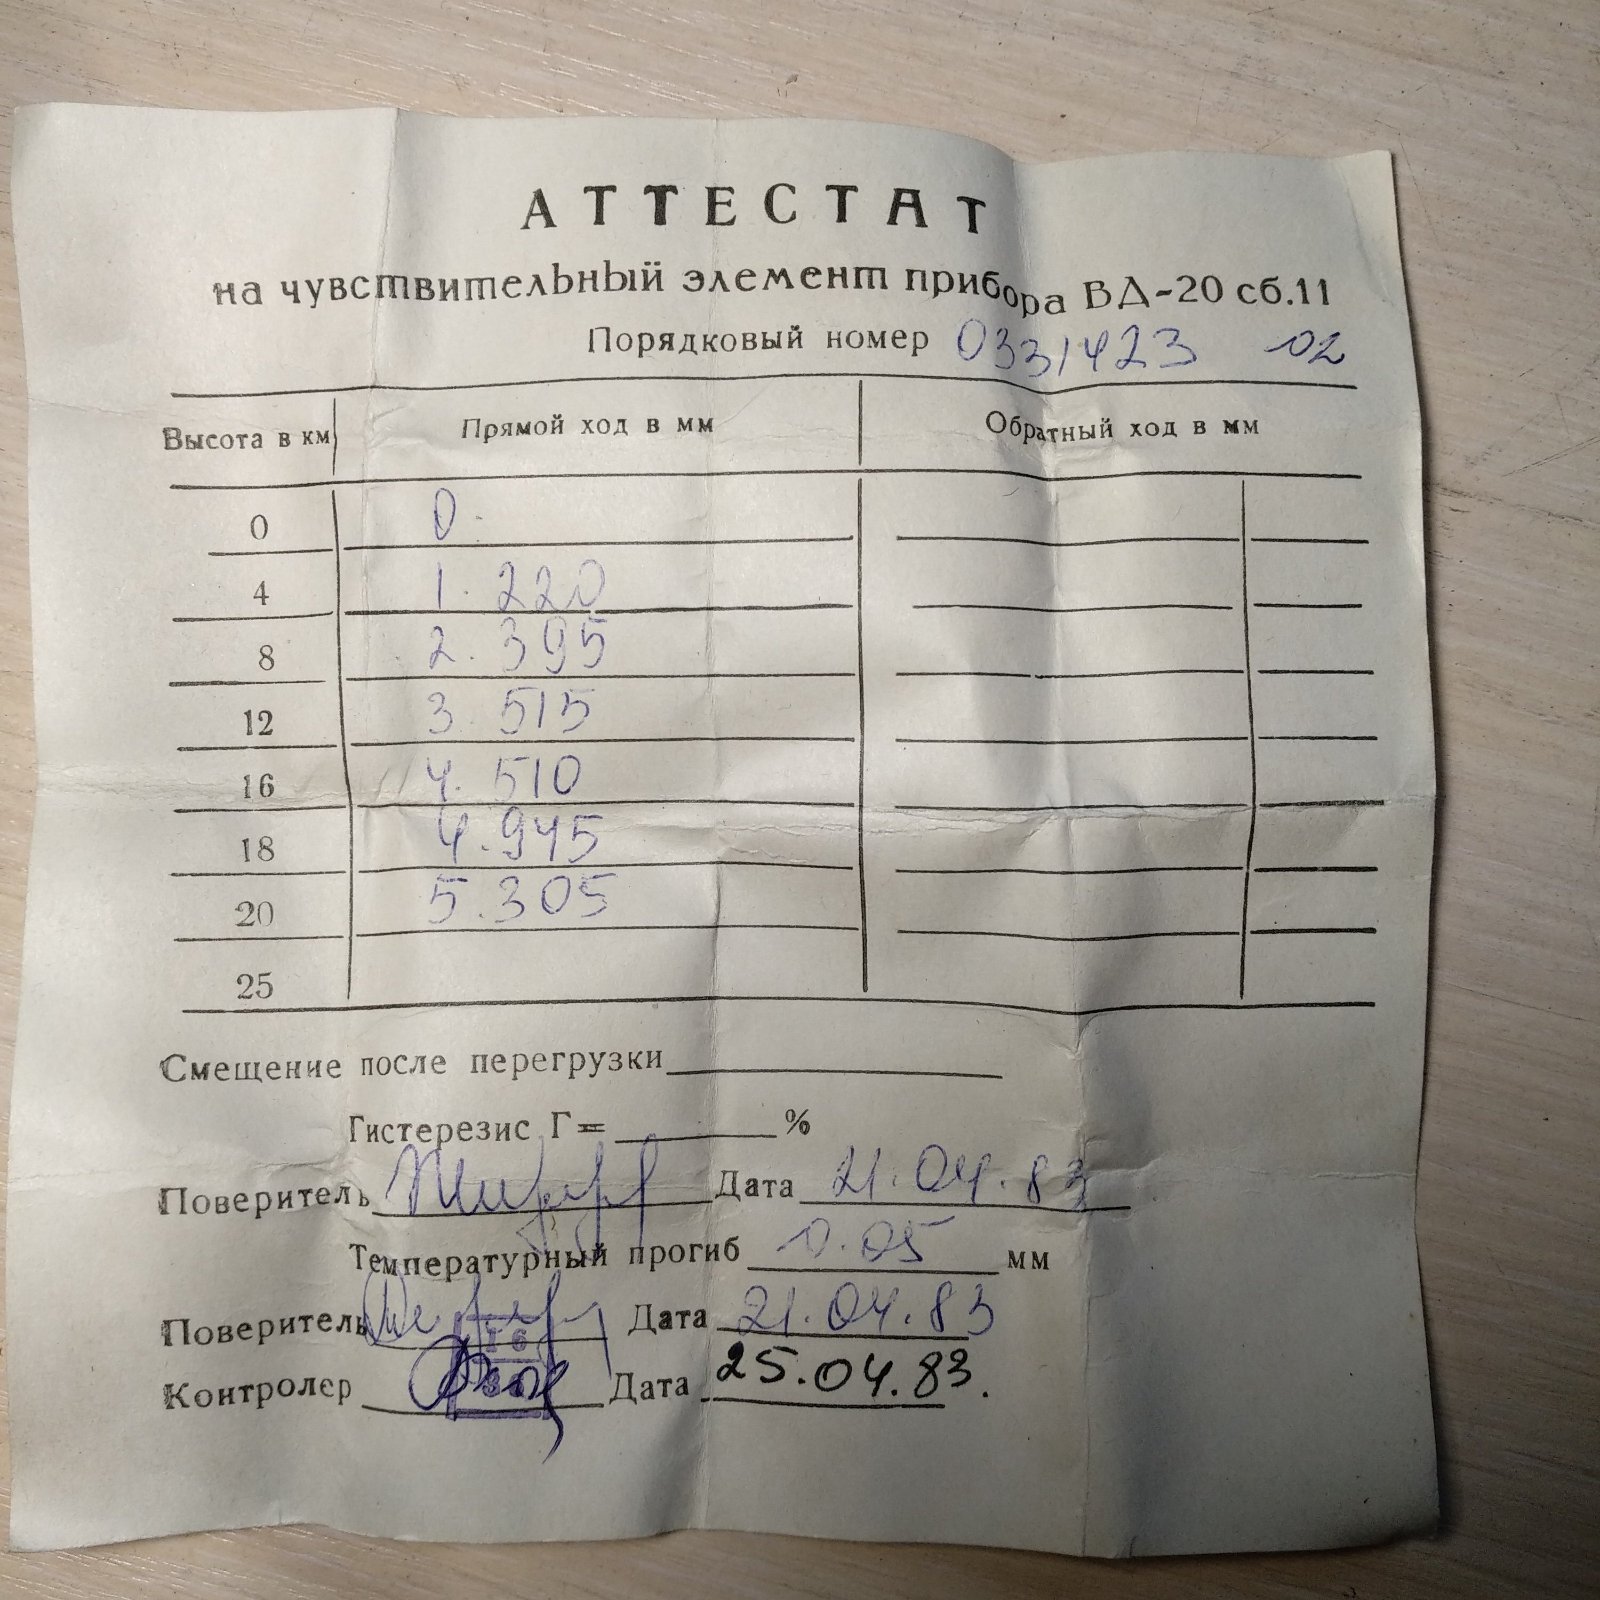 АТТЕСТАТ
на чувствительный элемент прибора ВД-20 сб.11
Порядковый номер 0331423 02
Высота в км Прямой ход в мм Обратный ход в мм
0 0.
4 1.220
8 2.395
12 3.515
16 4.510
18 4.945
20 5.305
25
Смещение после перегрузки
Гистерезис Г= %
Поверитель Дата 21.04.83
Температурный прогиб 0.05 мм
Поверитель Дата 21.04.83
Контролер Дата 25.04.83.